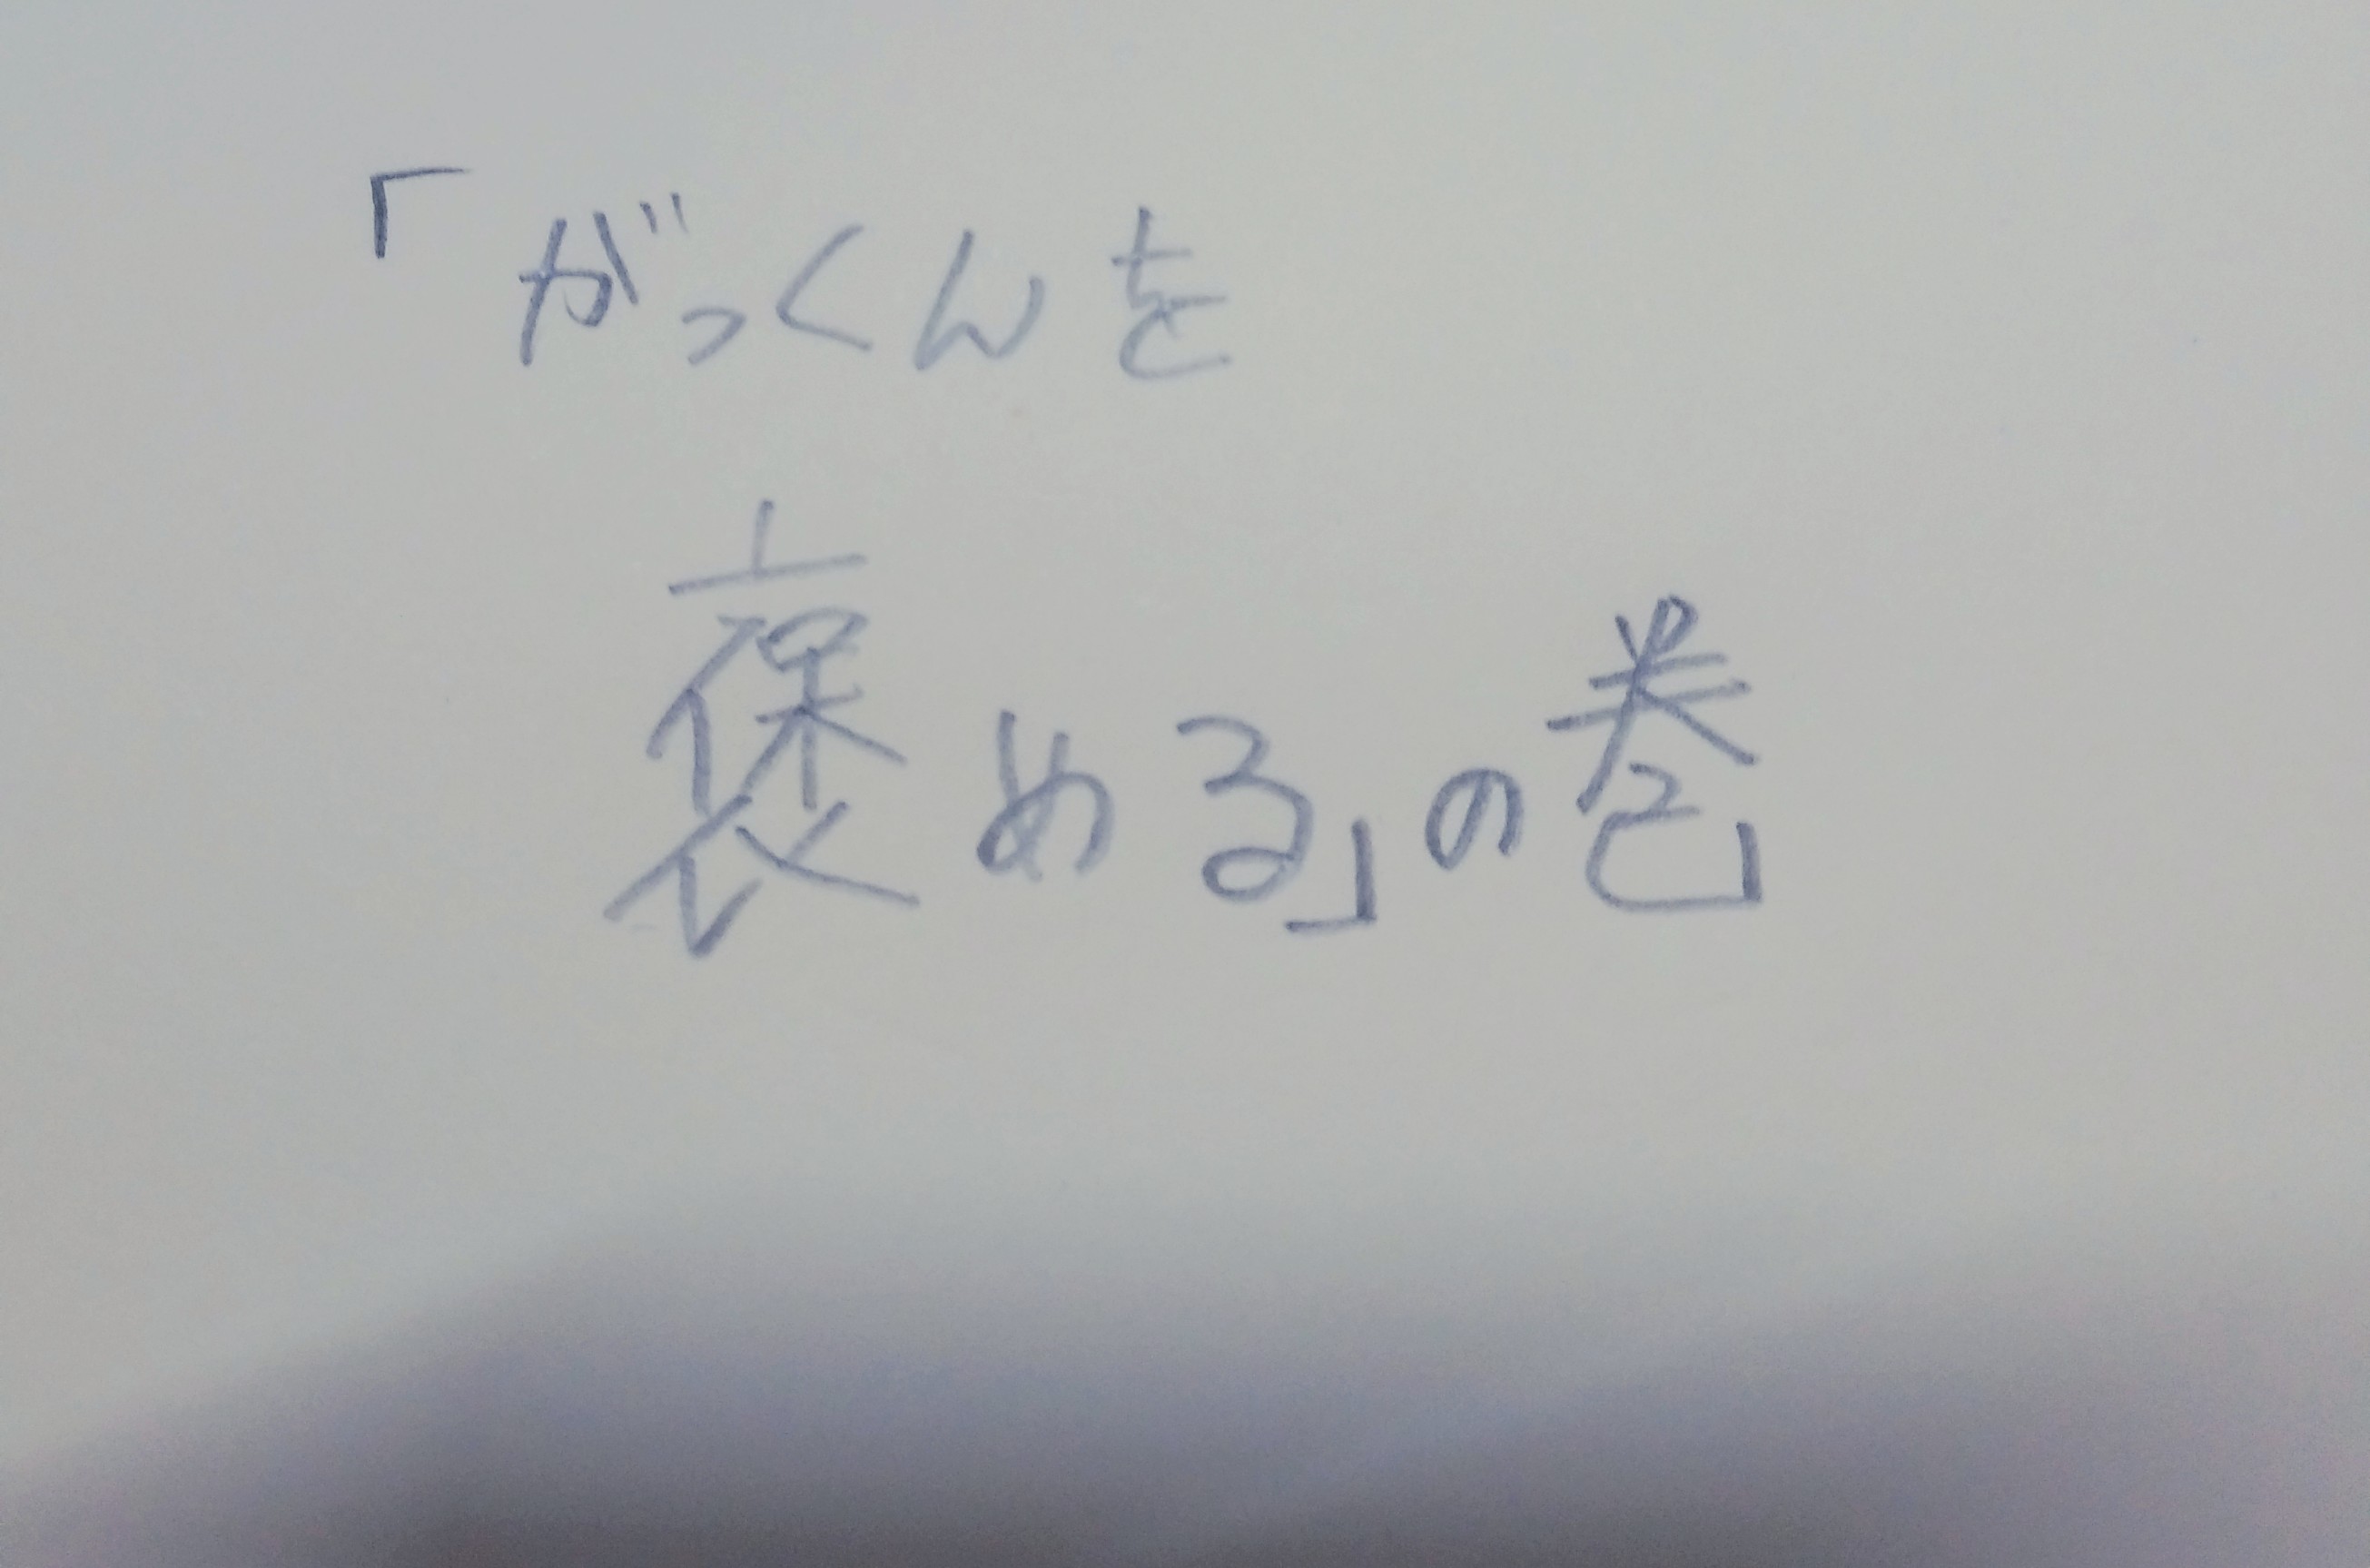 「がっくんを
褒める」の巻